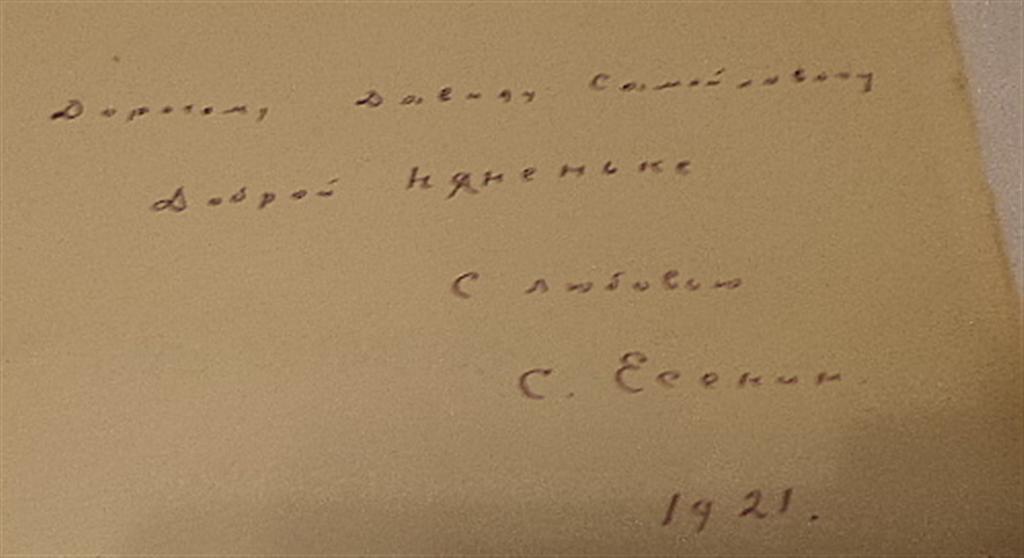 Дорогому Давиду Самойловичу
Доброй Няненьке
С любовью
С. Есенин
1921.